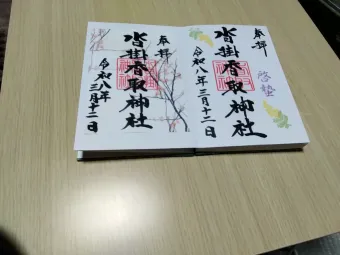 奉拝
啓蟄
沓掛香取神社
令和八年三月十二日
奉拝
沓掛香取神社
令和八年
三月十二日